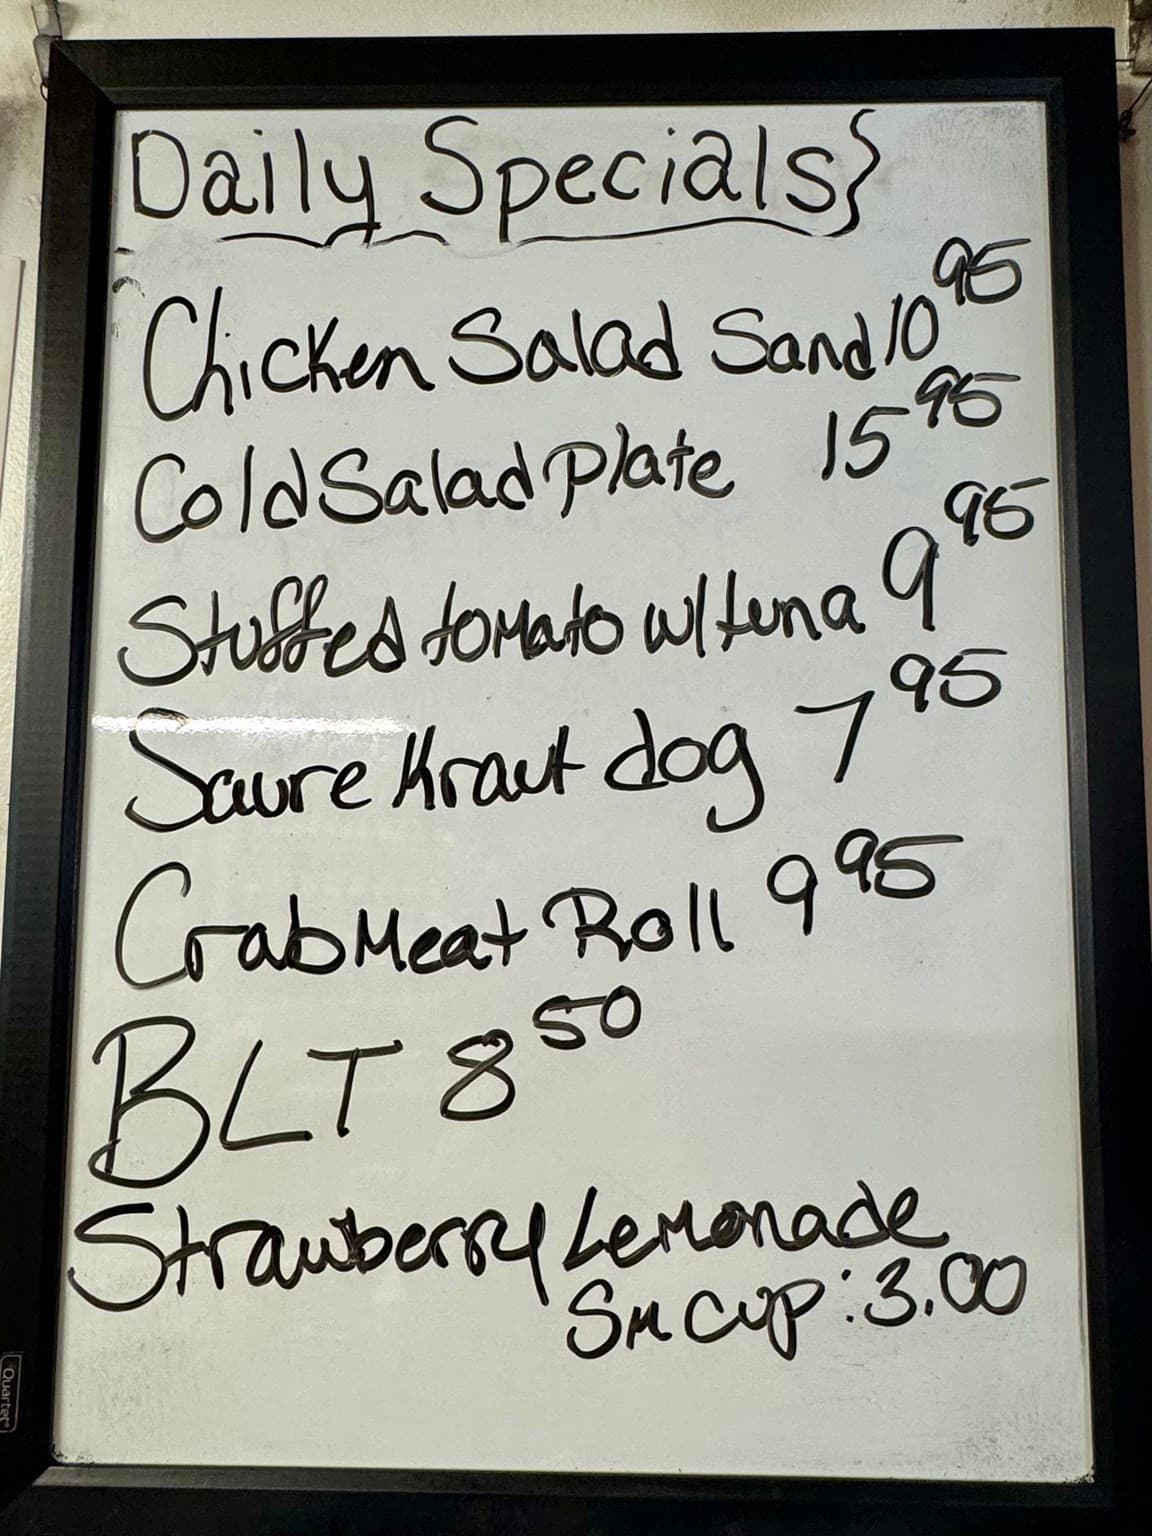 Daily Specials}
Chicken Salad Sand 10 95
Cold Salad Plate 15 95
Stuffed tomato w/tuna 9 95
Saure Kraut dog 7 95
Crab Meat Roll 9 95
BLT 8 50
Strawberry Lemonade
Sm cup: 3.00
Quartet